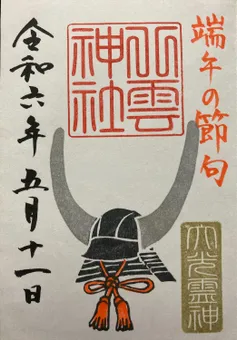 端午の節句
雲
神社
令和六年 五月十一日
光霊神